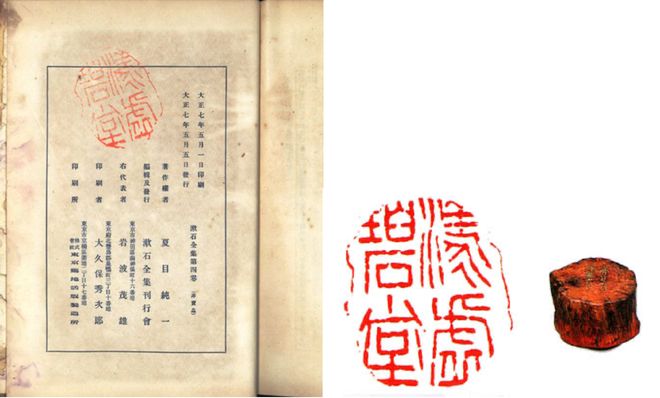 漾虛碧堂
大正七年五月一日印刷
大正七年五月五日發行
漱石全集第四卷 (非賣品)
著作權者 夏目純一
編輯及發行 漱石全集刊行會
東京市神田區南神保町十六番地
右代表者 岩波茂雄
印刷者 大久保秀次郎
東京市京橋區築地二丁目十七番地
印刷所 株式會社 東京築地活版製造所
漾虛碧堂